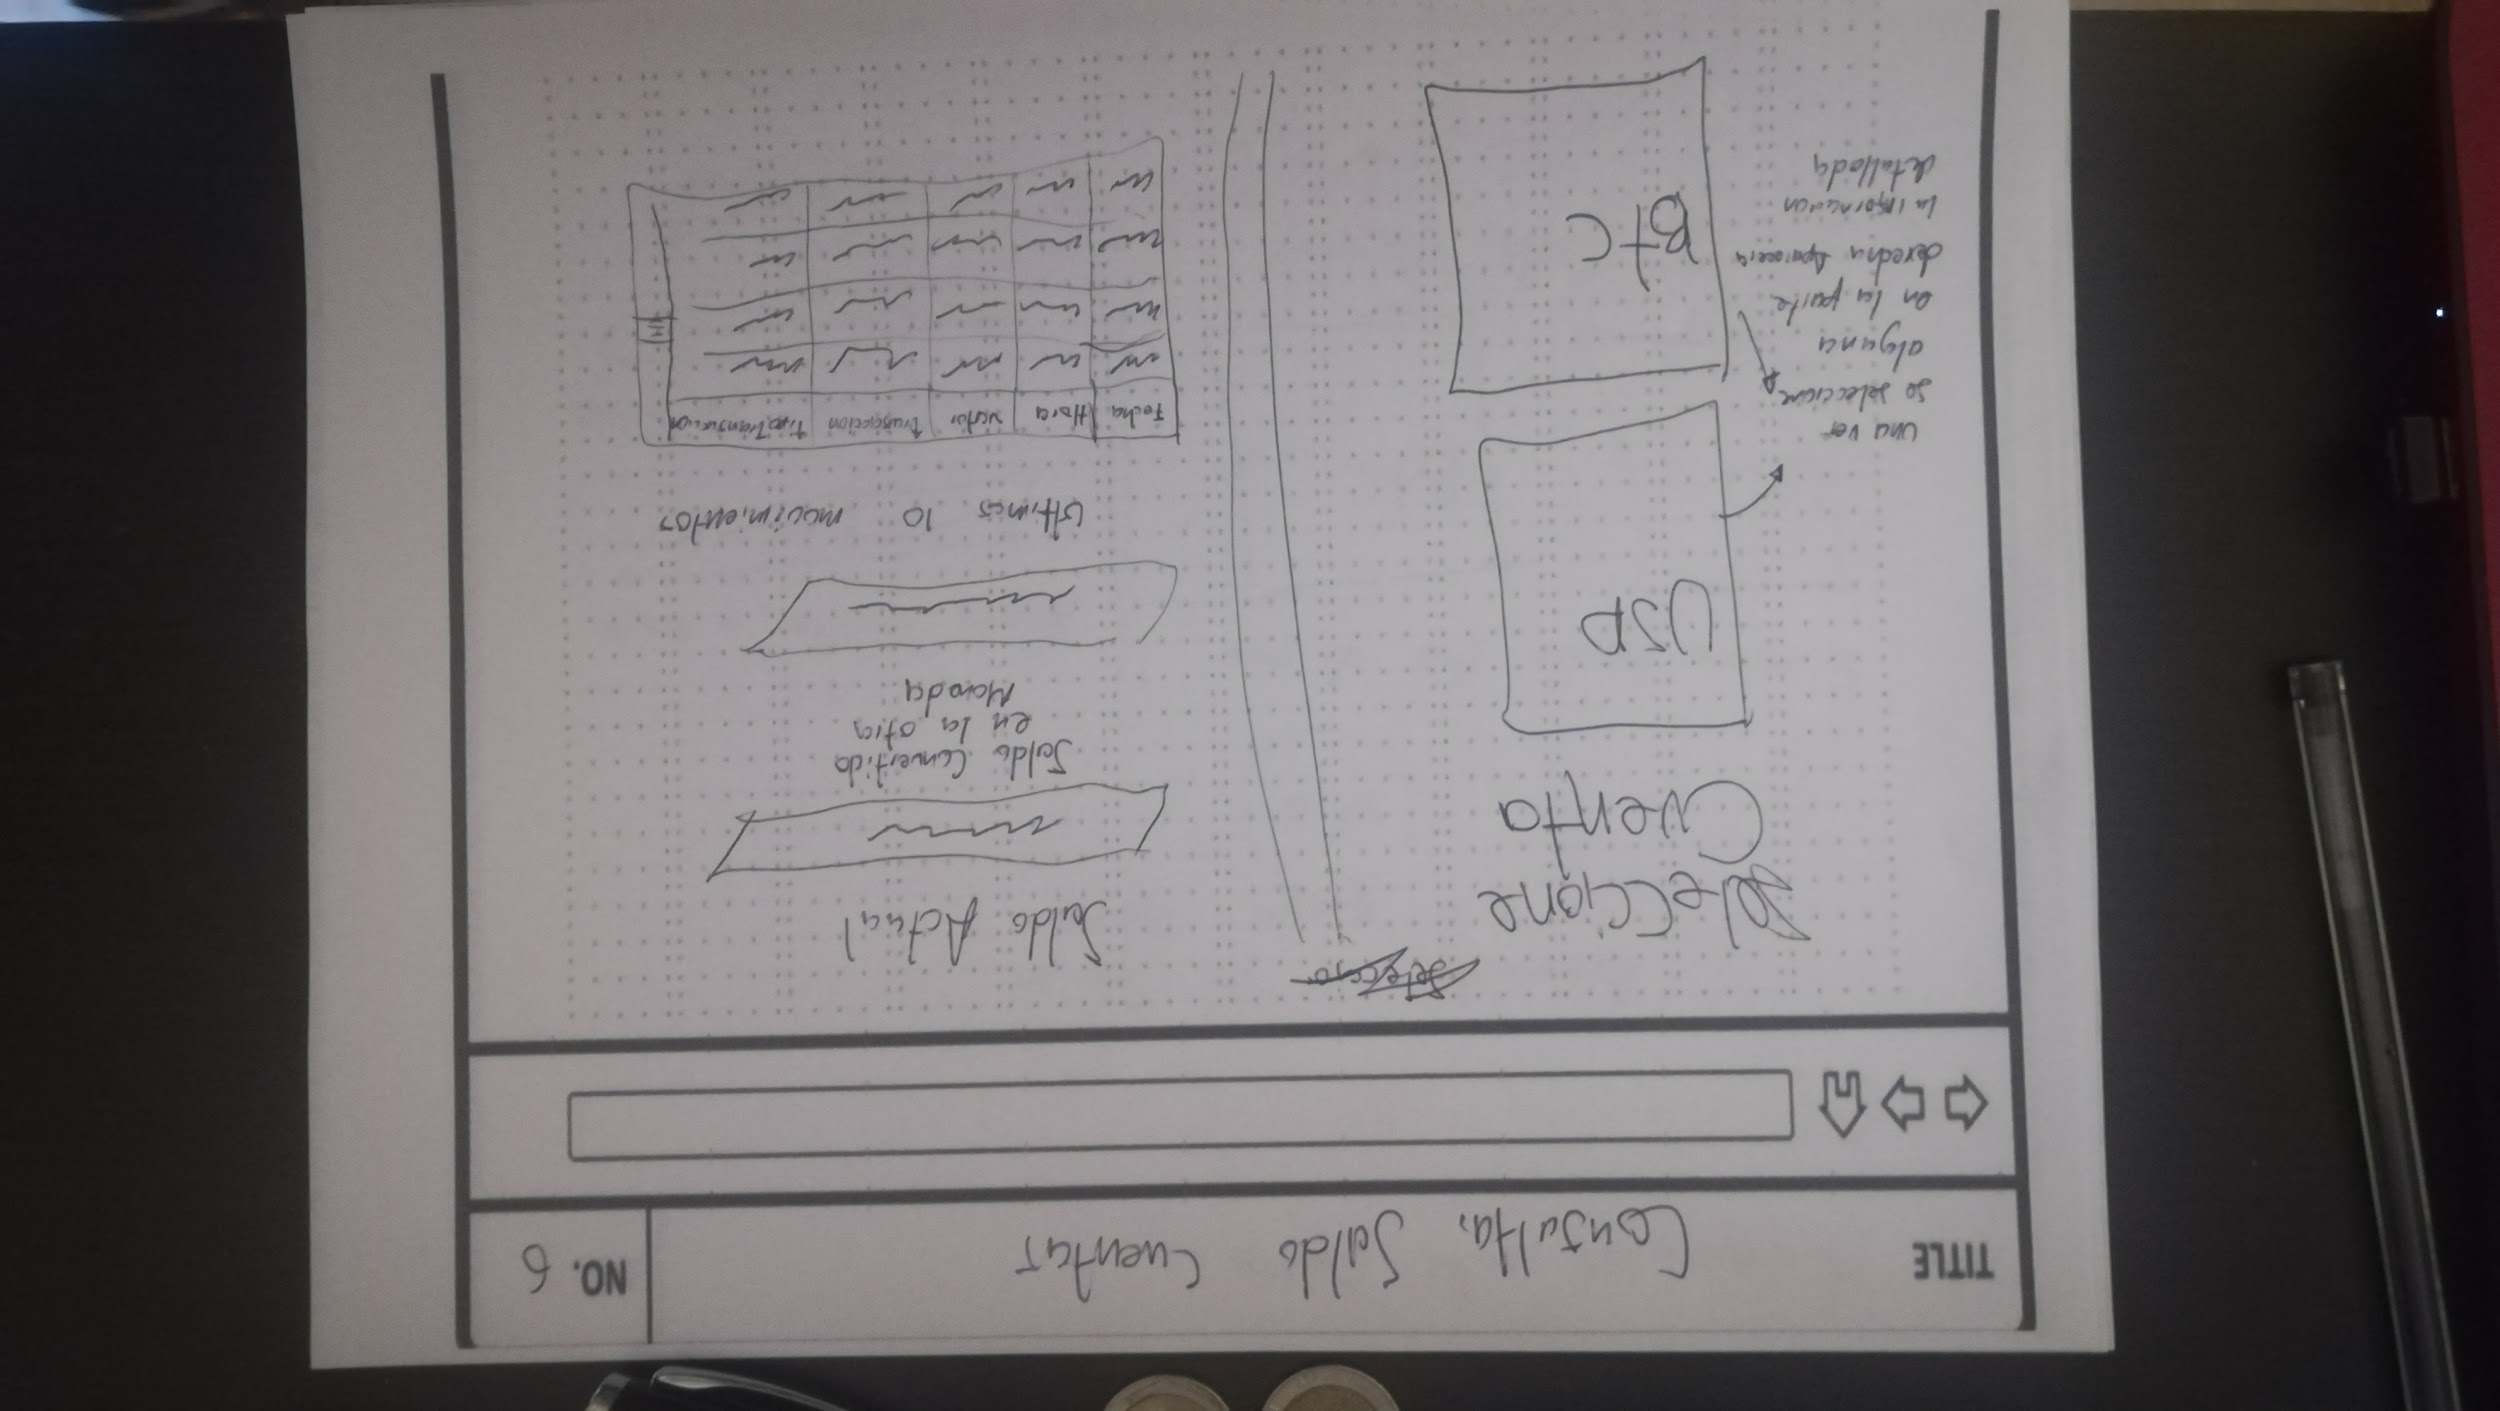 TITLE
Consulta. Saldo Cuentas
NO. 6
Seleccione
Cuenta
USD
BTC
una vez
se seleccione
alguna
en la parte
derecha Aparecera
la informacion
detallada
Saldo Actual
Saldo Convertido
en la otra
Moneda
Ultimos 10 movimientos
Fecha
Hora
tipo Transaccion